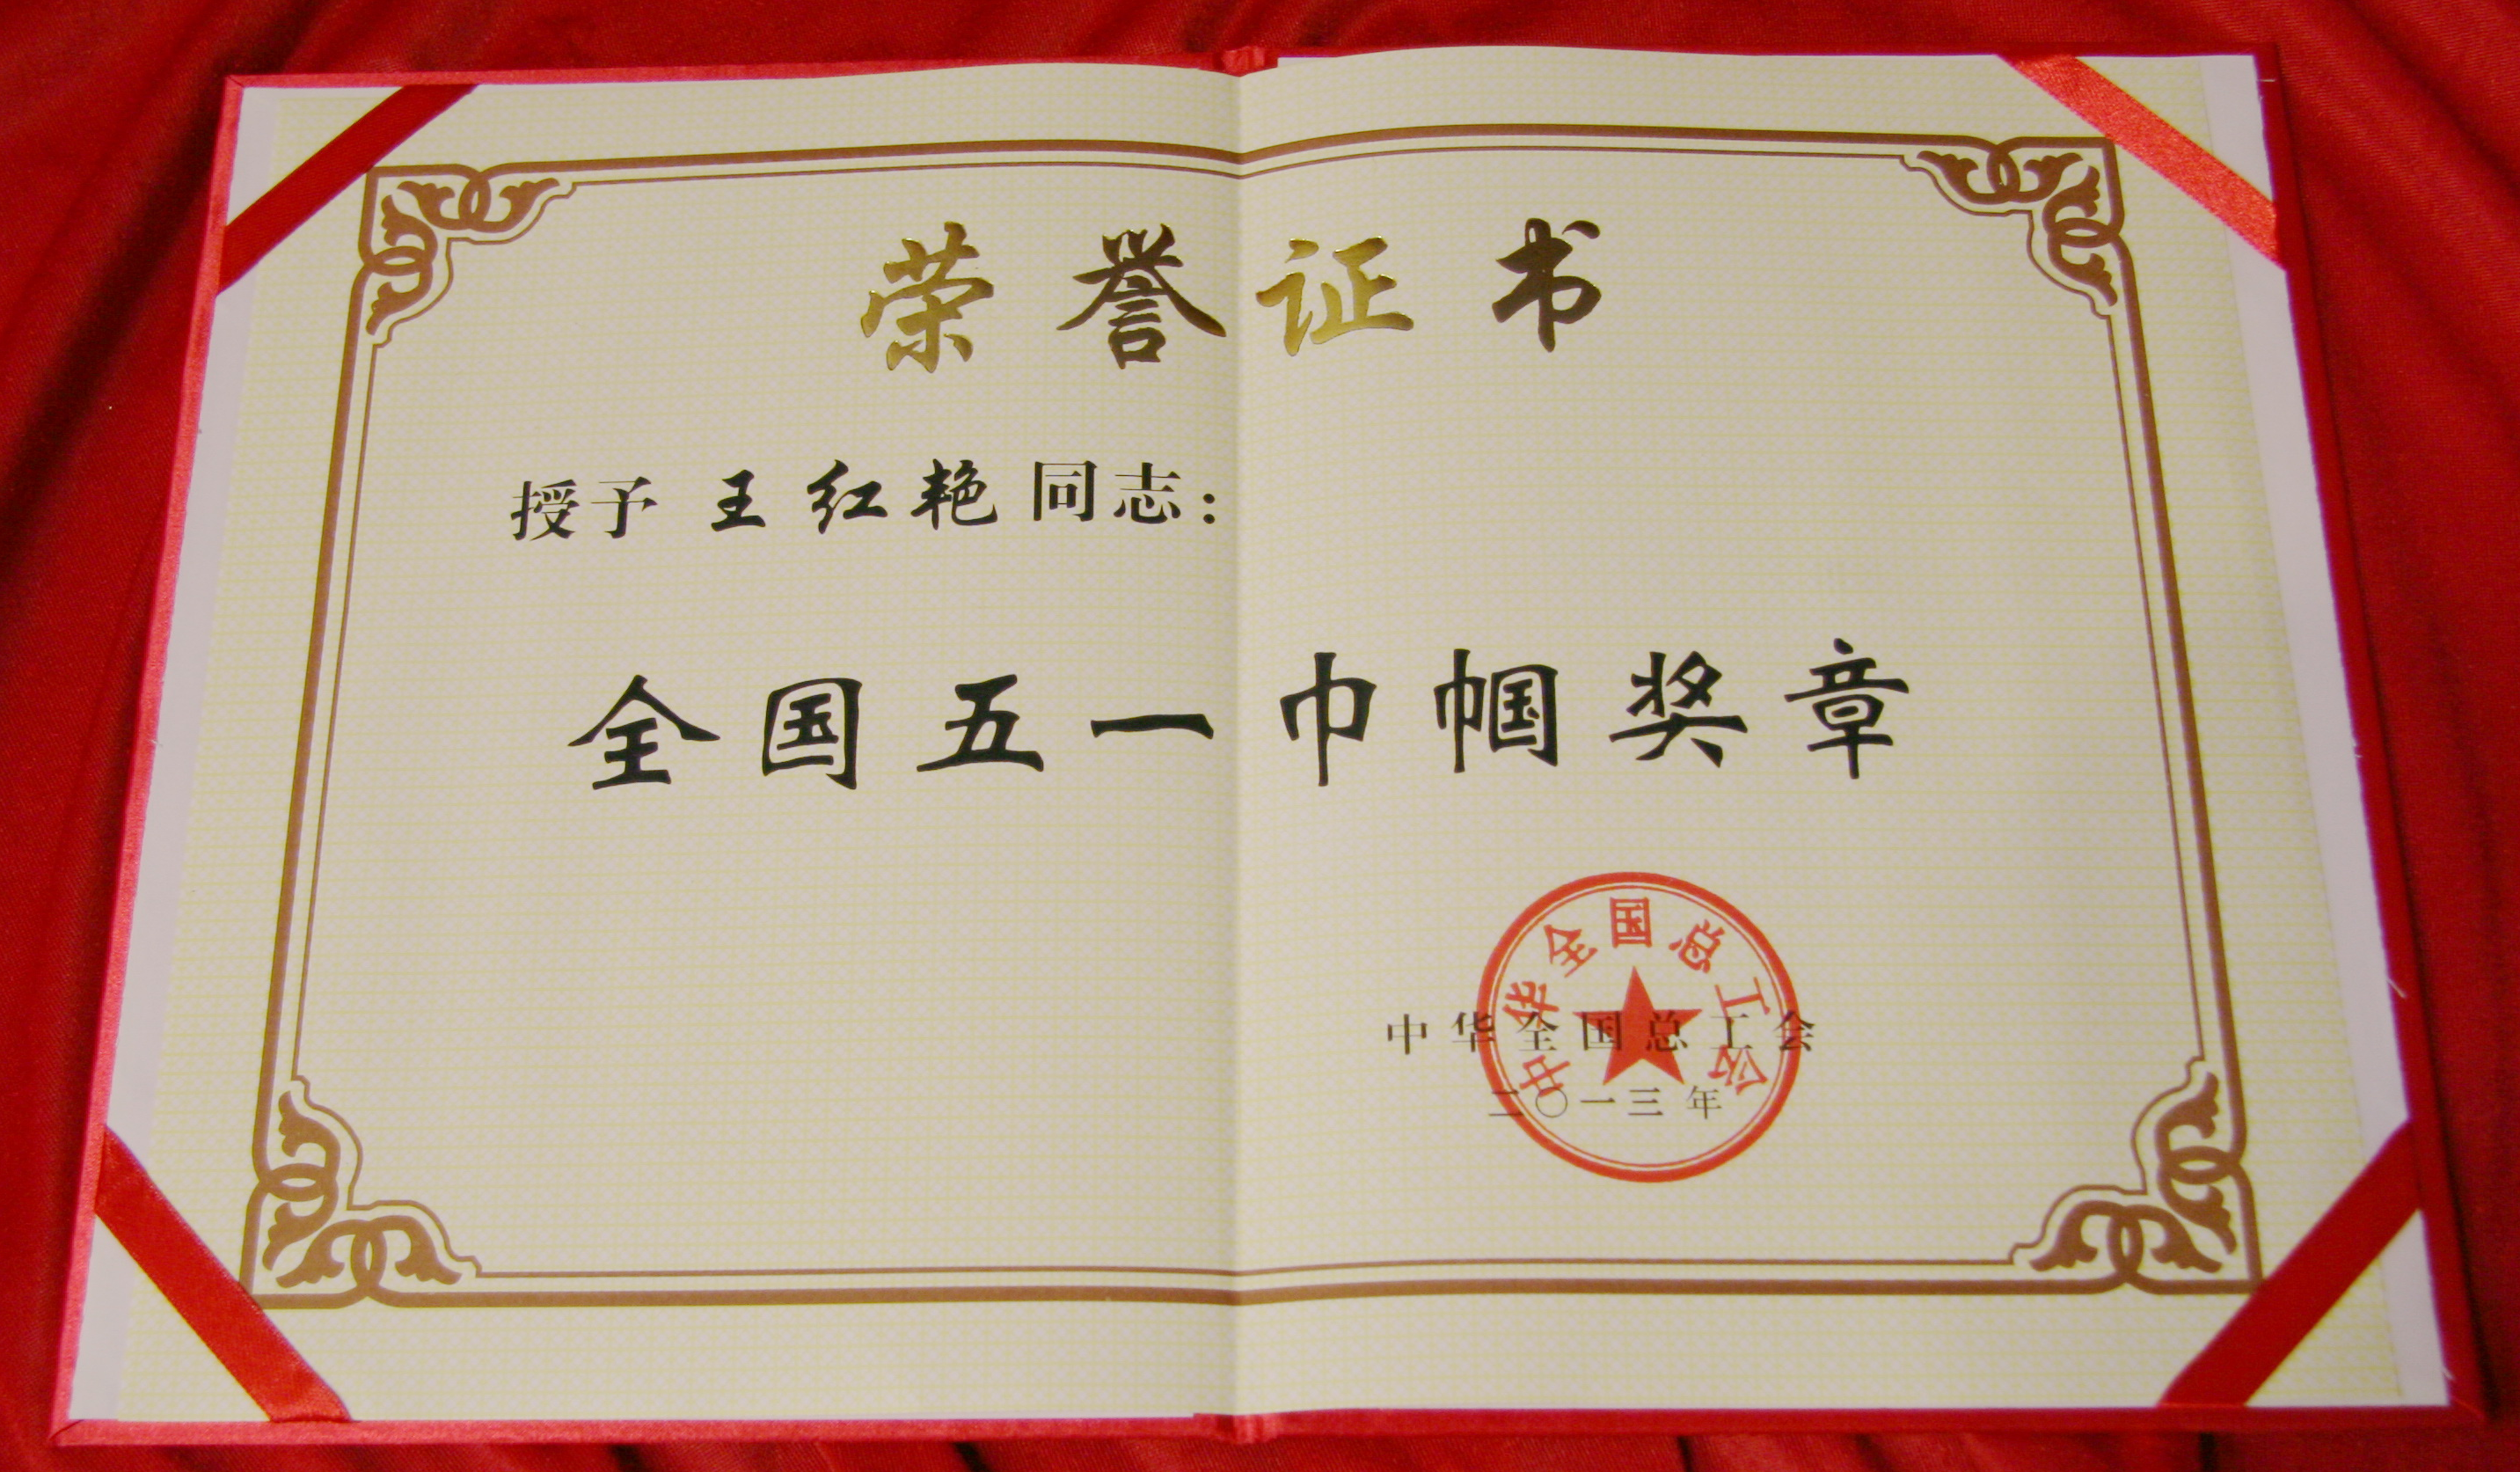 荣誉证书
授予 王红艳 同志：
全国五一巾帼奖章
中华全国总工会
中华全国总工会
二〇一三年